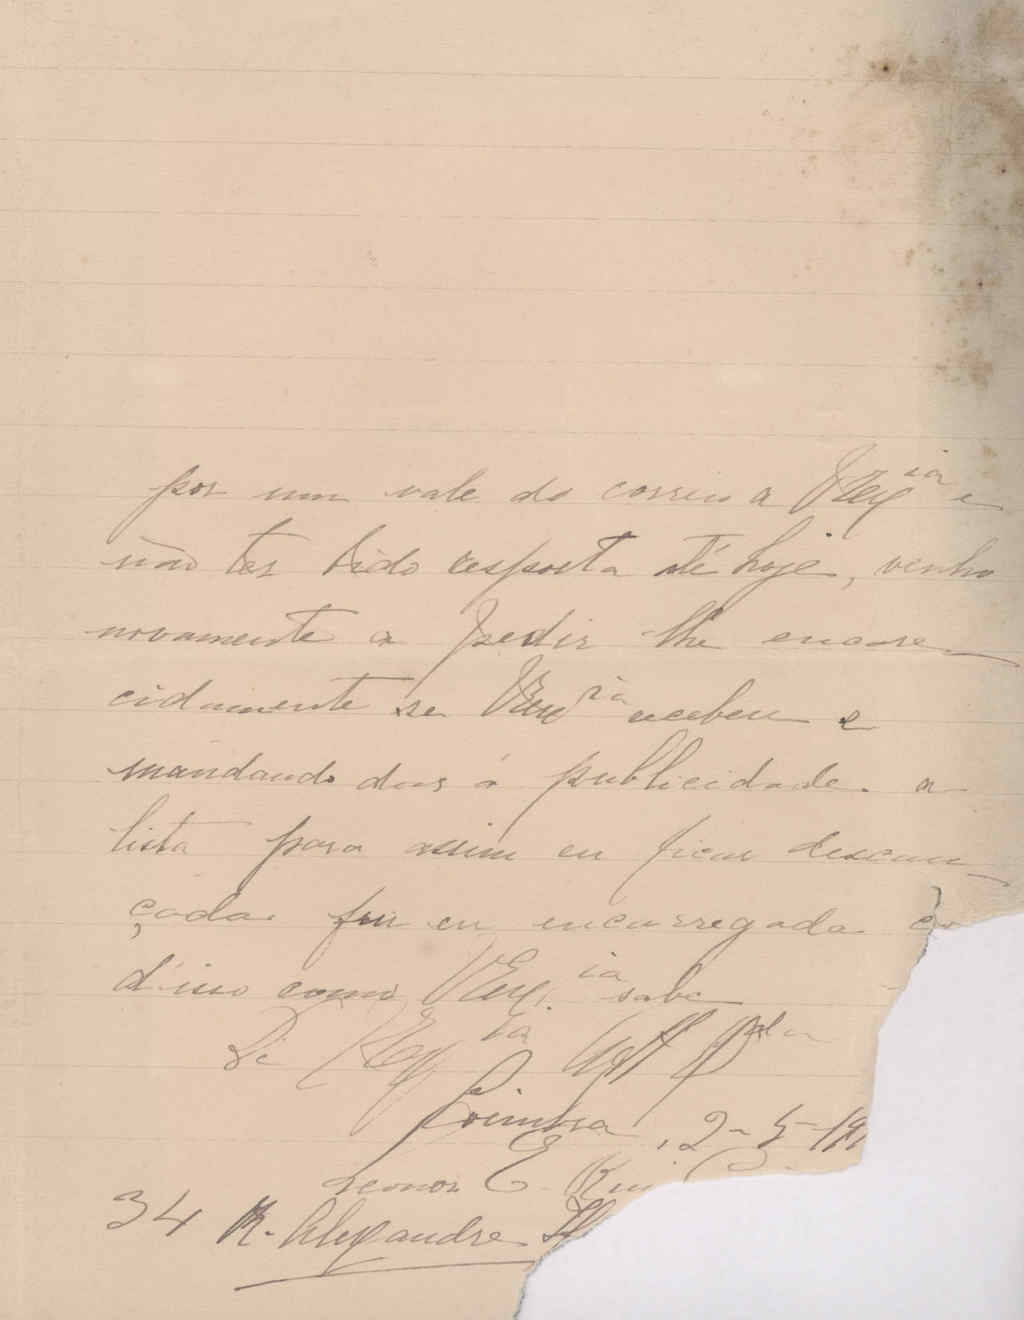 por um vale do correio a VExª e
não ter tido resposta até hoje, venho
novamente a pedir lhe encare-
cidamente se VExcia recebeu e
mandando dar á publicidade a
lista para assim eu ficar descan-
çada fui eu encarregada
d'isso como VExcia sabe
De VExcia Att
Coimbra, 2-5-19
Leonor E.
34 R. Alexandre H